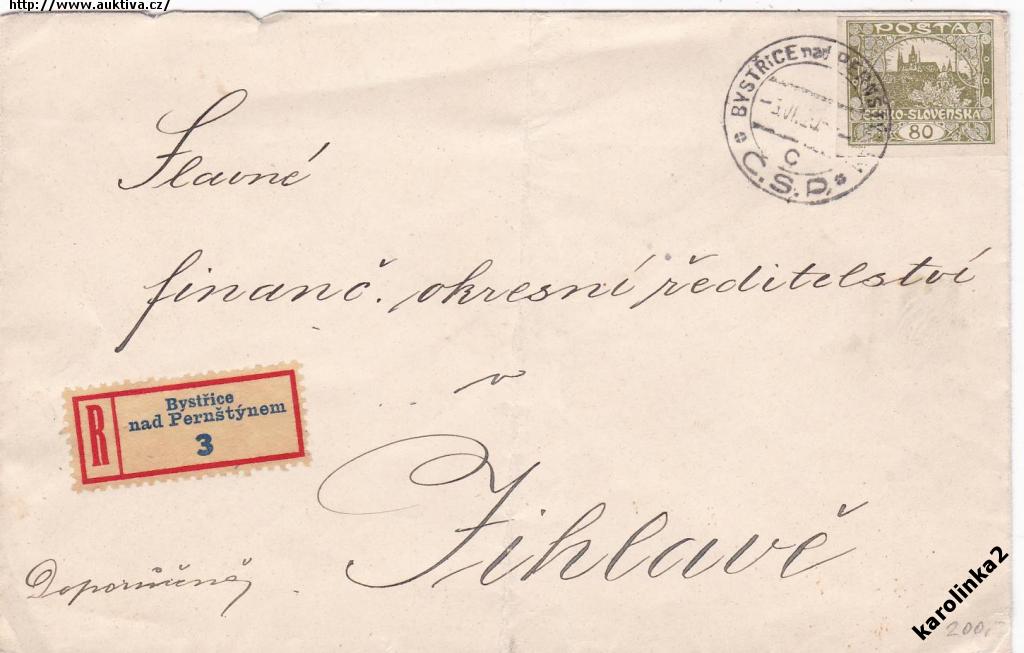 http://www.auktiva.cz/
POSTA
ČESKO-SLOVENSKÁ
80
BYSTŘICE nad PERNŠT
C
Č.S.P.
Slavné
finanč. okresní ředitelství
v
Jihlavě
R
Bystřice
nad Pernštýnem
3
Doporučeně
karolinka2
200,-